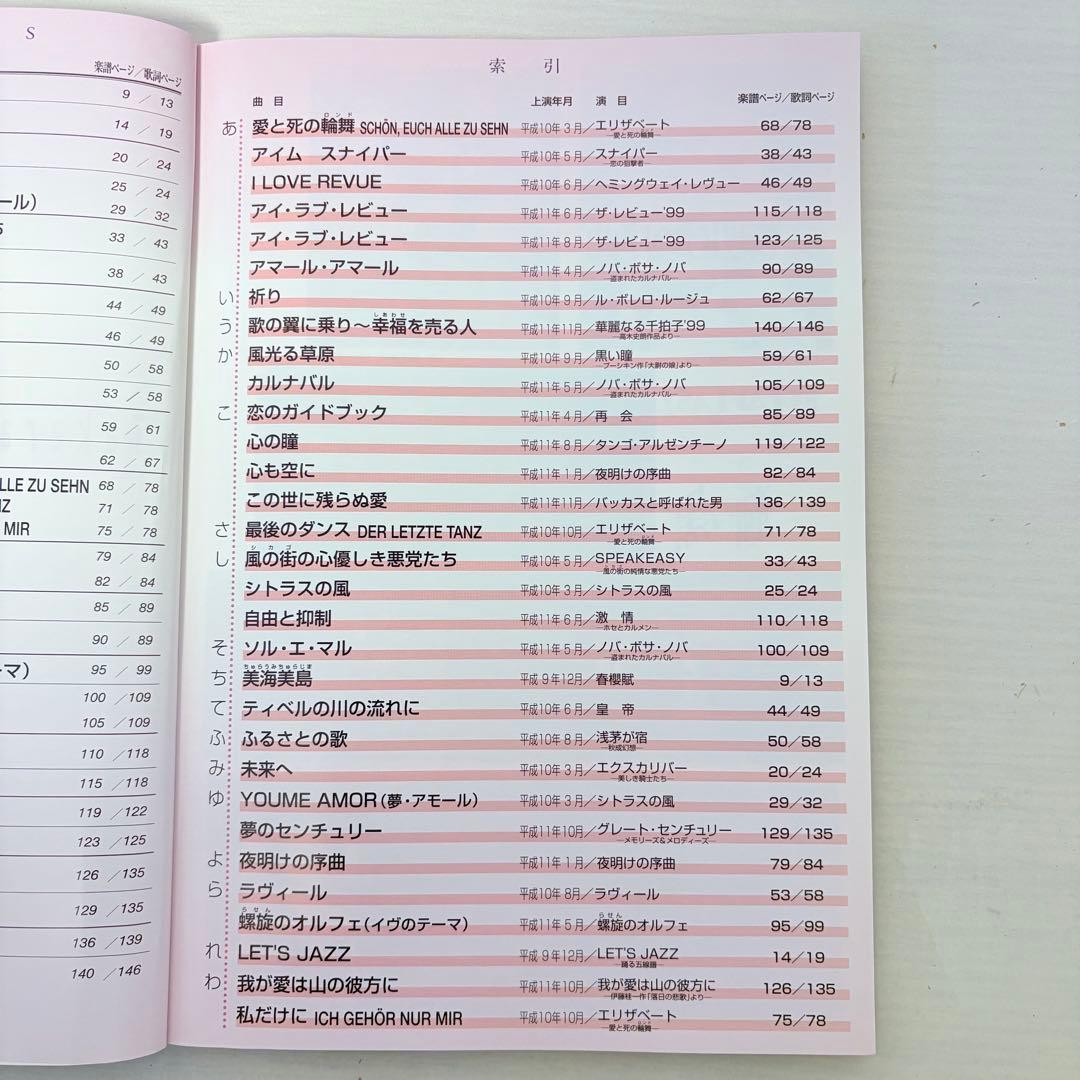 S
楽譜ページ／歌詞ページ
9 ／ 13
14 ／ 19
20 ／ 24
25 ／ 24
ール） 29 ／ 32
5 33 ／ 43
38 ／ 43
44 ／ 49
46 ／ 49
50 ／ 58
53 ／ 58
59 ／ 61
62 ／ 67
ALLE ZU SEHN 68 ／ 78
NZ 71 ／ 78
MIR 75 ／ 78
79 ／ 84
82 ／ 84
85 ／ 89
90 ／ 89
ーマ） 95 ／ 99
100 ／109
105 ／109
110 ／118
115 ／118
119 ／122
123 ／125
126 ／135
129 ／135
136 ／139
140 ／146
索 引
曲 目 上演年月 演 目 楽譜ページ／歌詞ページ
ロンド
あ 愛と死の輪舞 SCHÖN, EUCH ALLE ZU SEHN 平成10年 3月／エリザベート 68／78
―愛と死の輪舞―
アイム スナイパー 平成10年 5月／スナイパー 38／43
―恋の狙撃者―
I LOVE REVUE 平成10年 6月／ヘミングウェイ・レヴュー 46／49
アイ・ラブ・レビュー 平成11年 6月／ザ・レビュー'99 115／118
アイ・ラブ・レビュー 平成11年 8月／ザ・レビュー'99 123／125
アマール・アマール 平成11年 4月／ノバ・ボサ・ノバ 90／89
―盗まれたカルナバル―
い 祈り 平成10年 9月／ル・ボレロ・ルージュ 62／67
しあわせ
う 歌の翼に乗り～幸福を売る人 平成11年11月／華麗なる千拍子'99 140／146
―高木史朗作品より―
か 風光る草原 平成10年 9月／黒い瞳 59／61
―プーシキン作「大尉の娘」より―
カルナバル 平成11年 5月／ノバ・ボサ・ノバ 105／109
―盗まれたカルナバル―
こ 恋のガイドブック 平成11年 4月／再 会 85／89
心の瞳 平成11年 8月／タンゴ・アルゼンチーノ 119／122
心も空に 平成11年 1月／夜明けの序曲 82／84
この世に残らぬ愛 平成11年11月／バッカスと呼ばれた男 136／139
さ 最後のダンス DER LETZTE TANZ 平成10年10月／エリザベート 71／78
―愛と死の輪舞―
シカゴ
し 風の街の心優しき悪党たち 平成10年 5月／SPEAKEASY 33／43
―風の街の純情な悪党たち―
シトラスの風 平成10年 3月／シトラスの風 25／24
自由と抑制 平成11年 6月／激 情 110／118
―ホセとカルメン―
そ ソル・エ・マル 平成11年 5月／ノバ・ボサ・ノバ 100／109
―盗まれたカルナバル―
ちゅらうみちゅらじま
ち 美海美島 平成 9年12月／春櫻賦 9／13
て ティベルの川の流れに 平成10年 6月／皇 帝 44／49
ふ ふるさとの歌 平成10年 8月／浅茅が宿 50／58
―秋成幻想―
み 未来へ 平成10年 3月／エクスカリバー 20／24
―美しき騎士たち―
ゆ YOUME AMOR（夢・アモール） 平成10年 3月／シトラスの風 29／32
夢のセンチュリー 平成11年10月／グレート・センチュリー 129／135
―メモリーズ&メロディーズ―
よ 夜明けの序曲 平成11年 1月／夜明けの序曲 79／84
ら ラヴィール 平成10年 8月／ラヴィール 53／58
らせん らせん
螺旋のオルフェ（イヴのテーマ） 平成11年 5月／螺旋のオルフェ 95／99
れ LET'S JAZZ 平成 9年12月／LET'S JAZZ 14／19
―踊る五線譜―
わ 我が愛は山の彼方に 平成11年10月／我が愛は山の彼方に 126／135
―伊藤桂一作「落日の悲歌」より―
私だけに ICH GEHÖR NUR MIR 平成10年10月／エリザベート 75／78
―愛と死の輪舞―